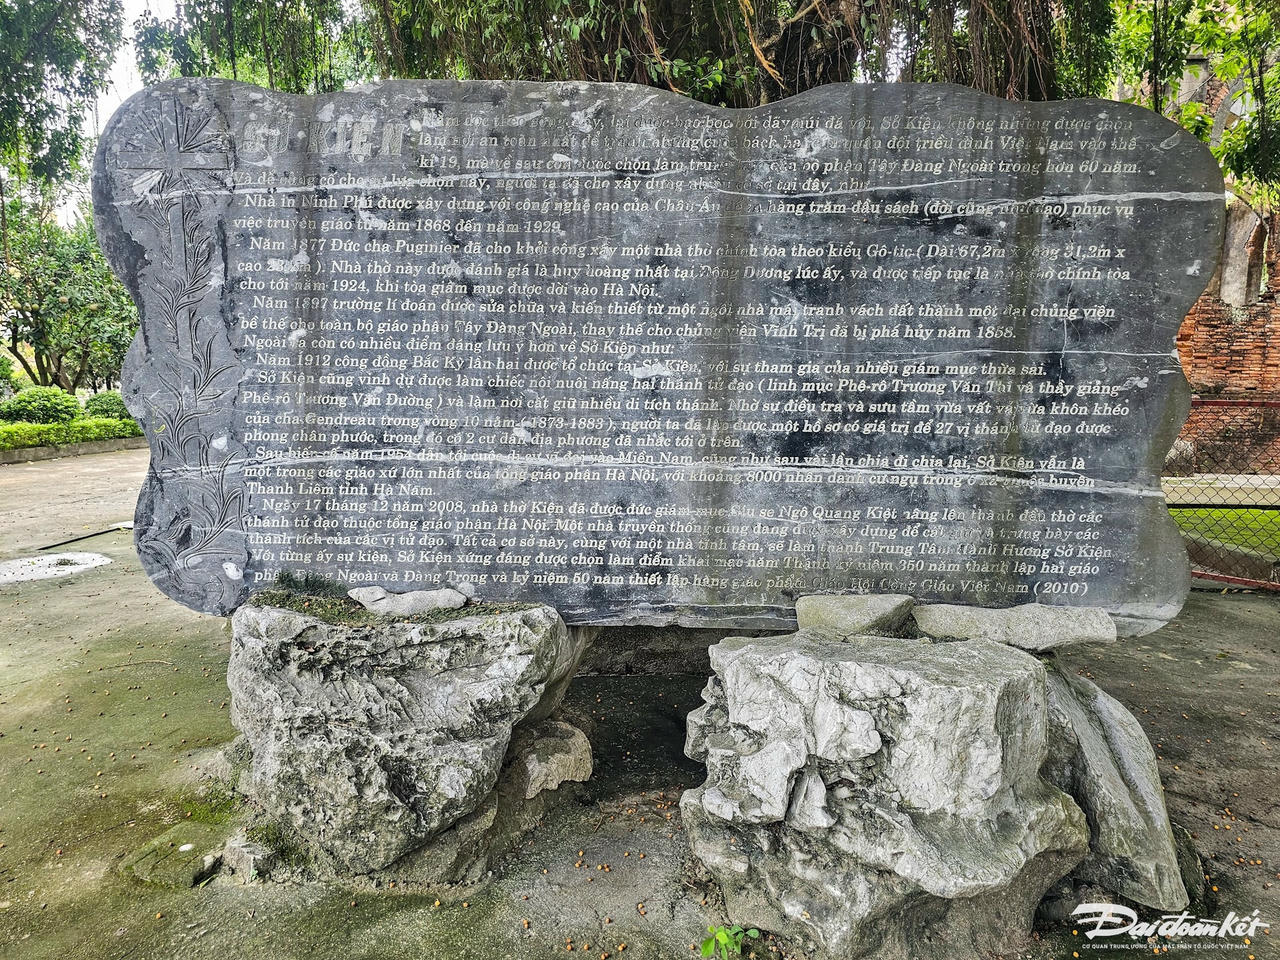 SỞ KIỆN
Nằm dọc theo sông Đáy, lại được bao bọc bởi dãy núi đá vôi, Sở Kiện không những được chọn
làm nơi an toàn nhất để tránh những cuộc bách hại của quân đội triều đình Việt Nam vào thế
kỉ 19, mà về sau còn được chọn làm trung giáo phận Tây Đàng Ngoài trong hơn 60 năm.
Và để củng cố cho sự lựa chọn này, người ta đã cho xây dựng cơ sở tại đây, như
Nhà in Ninh Phú được xây dựng với công nghệ cao của Châu Âu hàng trăm đầu sách (đời cũng như đạo) phục vụ
việc truyền giáo từ năm 1868 đến năm 1929.
Năm 1877 Đức cha Puginier đã cho khởi công xây một nhà thờ chính tòa theo kiểu Gô-tic ( Dài 67,2m x rộng 31,2m x
cao ). Nhà thờ này được đánh giá là huy hoàng nhất tại Đông Dương lúc ấy, và được tiếp tục là nhà thờ chính tòa
cho tới năm 1924, khi tòa giám mục được dời vào Hà Nội.
Năm 1897 trường lí đoán được sửa chữa và kiến thiết từ một ngôi nhà mái tranh vách đất thành một đại chủng viện
bề thế cho toàn bộ giáo phận Tây Đàng Ngoài, thay thế cho chủng viện Vĩnh Trị đã bị phá hủy năm 1858.
Ngoài ra còn có nhiều điểm đáng lưu ý hơn về Sở Kiện như:
Năm 1912 công đồng Bắc Kỳ lần hai được tổ chức tại Sở Kiện, với sự tham gia của nhiều giám mục thừa sai.
Sở Kiện cũng vinh dự được làm chiếc nôi nuôi nấng hai thánh tử đạo ( linh mục Phê-rô Trương Văn Thi và thầy giảng
Phê-rô Trương Văn Đường ) và làm nơi cất giữ nhiều di tích thánh. Nhờ sự điều tra và sưu tầm vừa vất vả vừa khôn khéo
của cha Gendreau trong vòng 10 năm (1873-1883), người ta đã lập được một hồ sơ có giá trị để 27 vị thánh tử đạo được
phong chân phước, trong đó có 2 cư dân địa phương đã nhắc tới ở trên.
Sau biến cố năm 1954 dẫn tới cuộc di cư vĩ đại vào Miền Nam, cũng như sau vài lần chia đi chia lại, Sở Kiện vẫn là
một trong các giáo xứ lớn nhất của tổng giáo phận Hà Nội, với khoảng 8000 nhân danh cư ngụ trong xã thuộc huyện
Thanh Liêm tỉnh Hà Nam.
Ngày 17 tháng 12 năm 2008, nhà thờ Kiện đã được đức giám mục Giu se Ngô Quang Kiệt nâng lên thành đền thờ các
thánh tử đạo thuộc tổng giáo phận Hà Nội. Một nhà truyền thống cũng đang được xây dựng để cất giữ và trưng bày các
thánh tích của các vị tử đạo. Tất cả cơ sở này, cùng với một nhà tĩnh tâm, sẽ làm thành Trung Tâm Hành Hương Sở Kiện.
Với từng ấy sự kiện, Sở Kiện xứng đáng được chọn làm điểm khai mạc năm Thánh kỷ niệm 350 năm thành lập hai giáo
phận Đàng Ngoài và Đàng Trong và kỷ niệm 50 năm thiết lập hàng giáo phẩm Giáo Hội Công Giáo Việt Nam ( 2010 )
Đại đoàn kết
CƠ QUAN TRUNG ƯƠNG CỦA MẶT TRẬN TỔ QUỐC VIỆT NAM